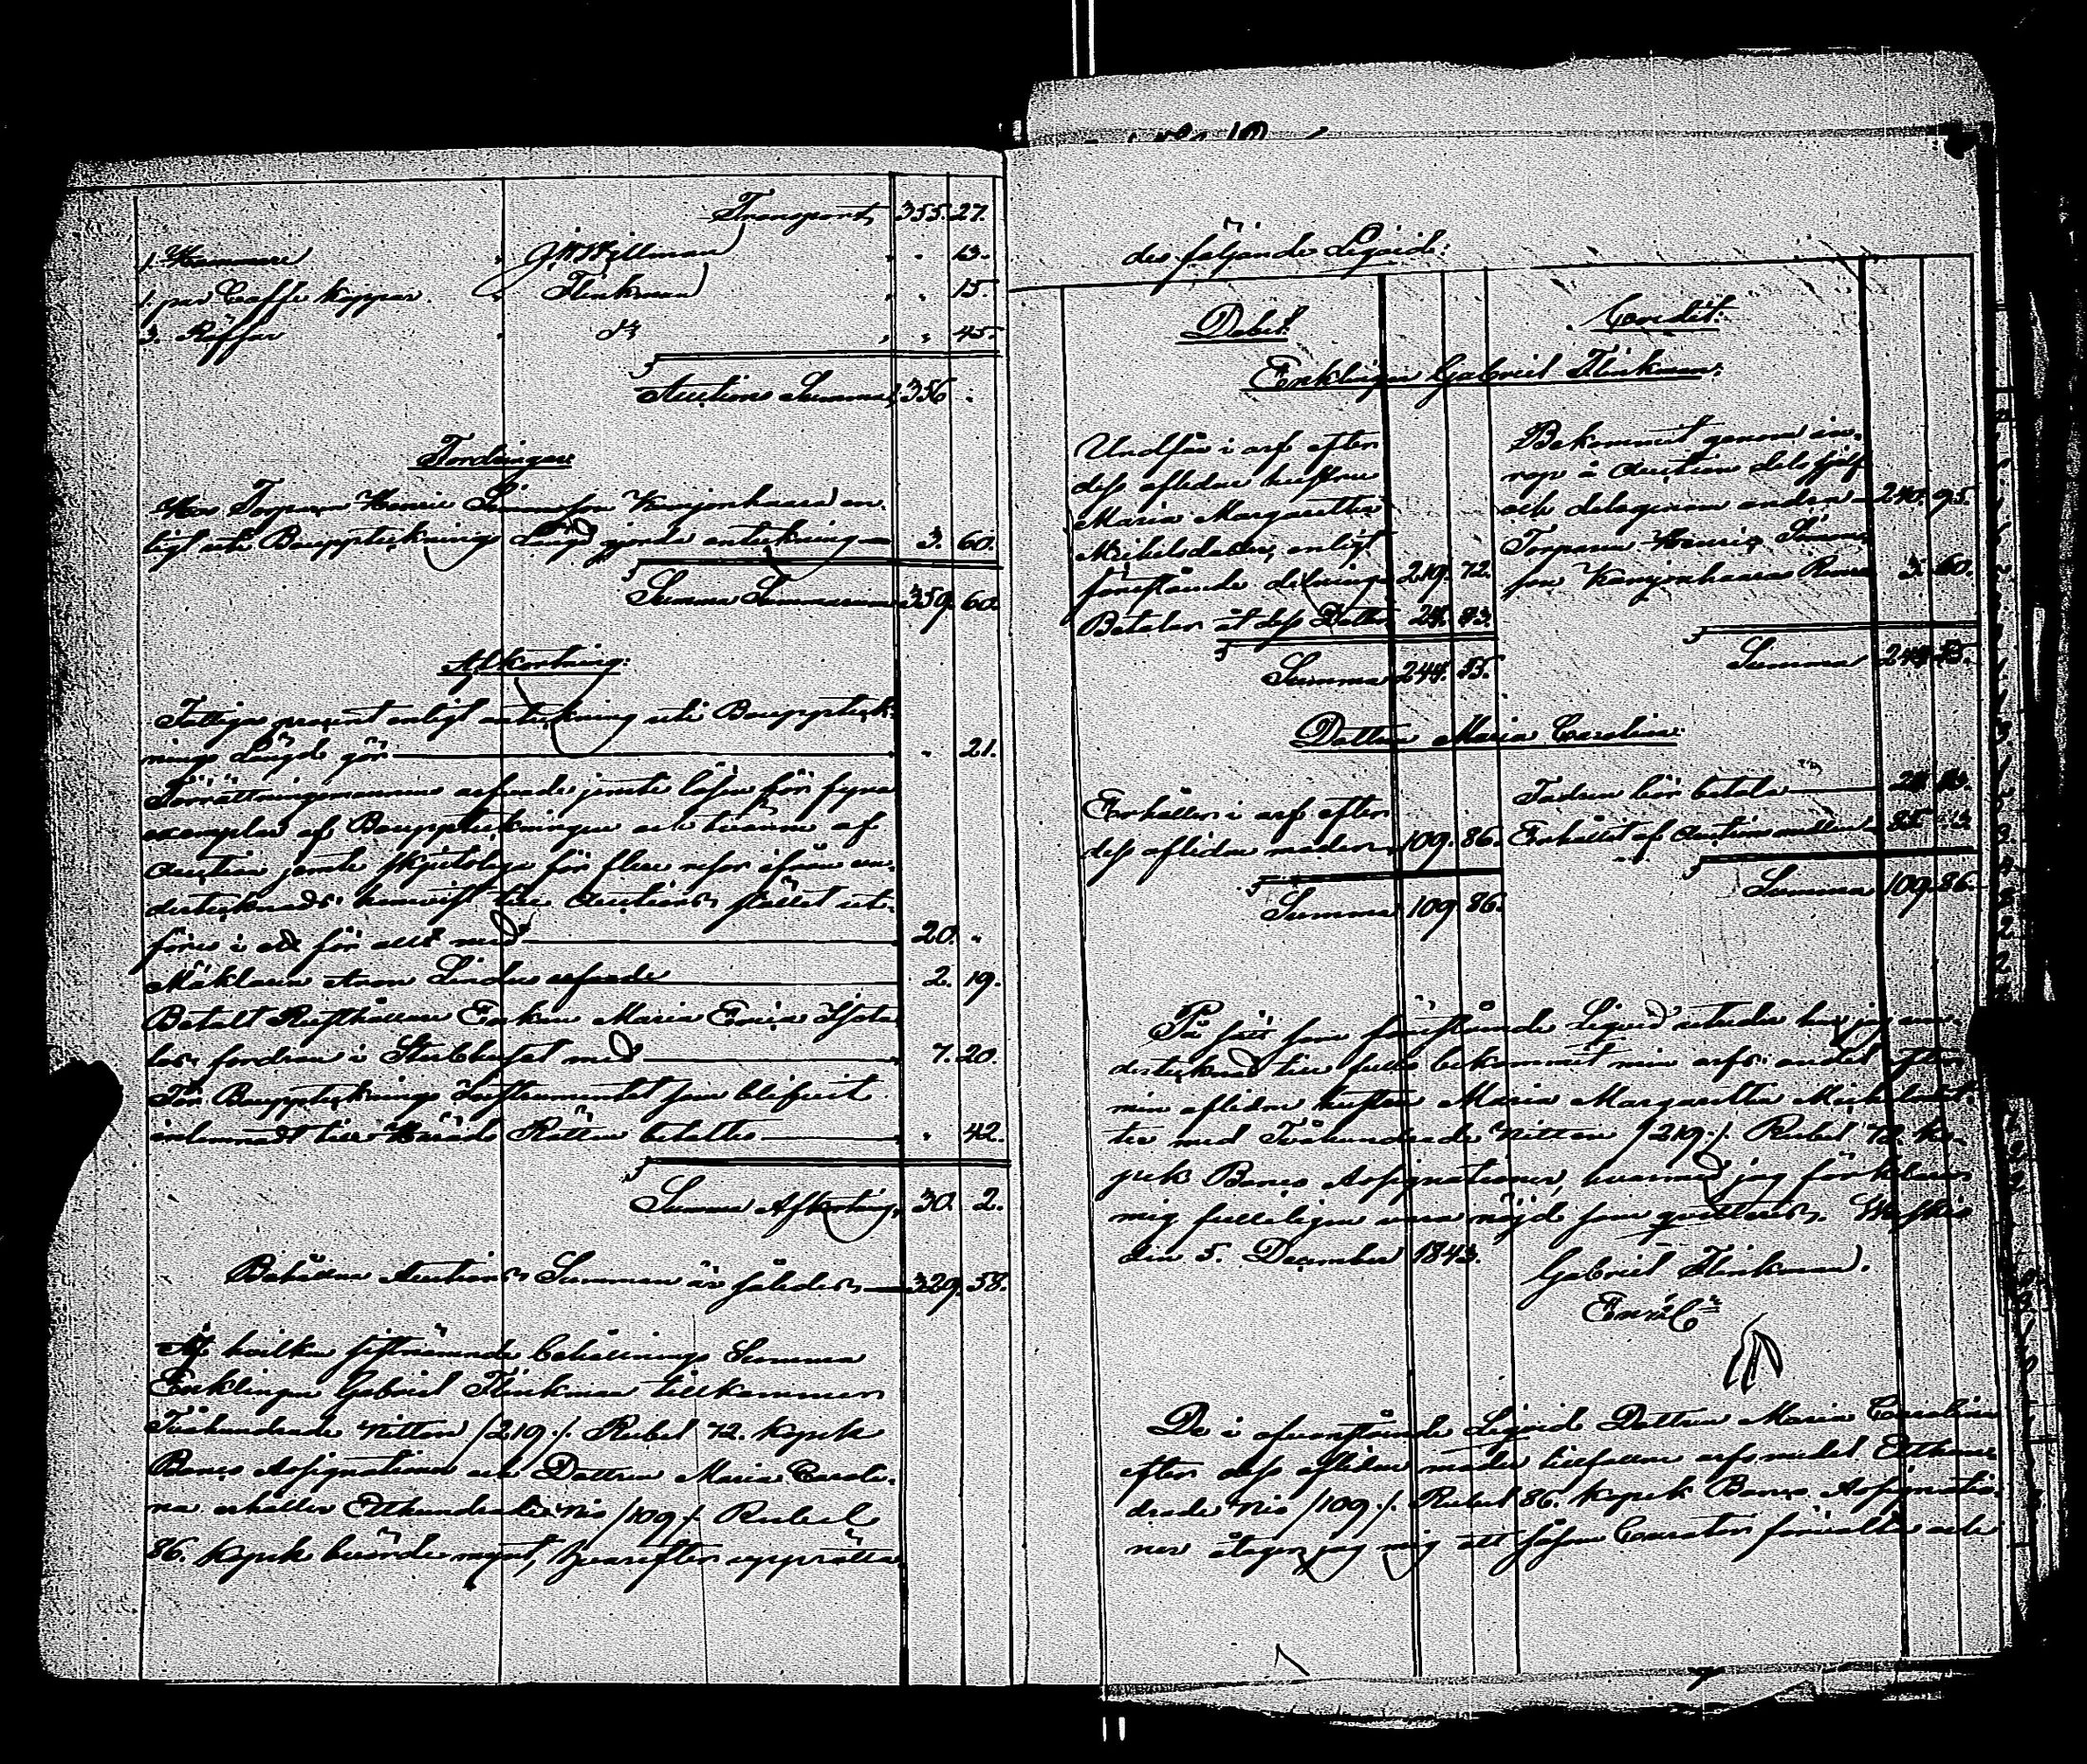 Transport, 355. 27.
1. Hammare " G. W. Wellman " " 13.
1. par Caffe koppar " Flinkman " " 15.
3. Räffsor " do " " 45.
Auctions Summa 356 "
Fordringar.
Hos Torparen Henric Simonsson Kanjonhaara en-
ligt uti Boupptecknings Längd gjorde anteckning 3. 60.
Summa Summarum 359. 60.
Afkortning:
Fattigas procent enligt anteckning uti Bouppteck-
nings Längd gör " 21.
Förrättningsmannens arfvode jemte lösen för fyra
exemplar af Bouppteckningen och tvänne af
Auction jemte skjutslega för flere resor ifrån un-
dertecknads hemvist till Auctions stället ut-
föres i ett för allt med 20. "
Mäklaren Aron Linders arfvode 2. 19.
Betalt Rusthållare Enkan Maria Erica
los fordran i Sterbhuset med 7. 20.
För Boupptecknings Instrumentet som blifvit
inlemnadt till Härads Rätten betaltes " 42.
Summa Afkortning, 30. 2.
Behållna Auctions Summan är således 329. 58.
Af hvilken sistnämnde behållnings Summa
Enklingen Gabriel Flinkman tillkommer
Tvåhundrade Nitton /219./ Rubel 72. kopek
Banco Assignationer och Dottren Maria Caroli-
na erhåller Etthundrade Nio /109./ Rubel
86. kopek lika mynt, hvarefter upprätta-
des följande Liqvid:
Debet. Credit.
Enklingen Gabriel Flinkman:
Undfår i arf efter
dess aflidne hustru
Maria Margaretha
Mickelsdotter, enligt
föreståënde delning 219. 72.
Betalar åt dess Dotter 24. 83.
Summa 244. 55.
Bekommit genom in-
rop å Auction dels sjelf
och delegerom andra 240. 95.
Torparen Henric Simons-
son Kanjonhaaras Revers 3. 60.
Summa 244. 55.
Dottren Maria Carolina:
Erhåller i arf efter
dess aflidne moder 109. 86.
Summa 109. 86.
Fadren bör betala 24. 83.
Erhållit af Auctions medlen 85. 3.
Summa 109. 86.
På sätt som föreståënde Liqvid utvisar har jag un-
dertecknad till fullo bekommit min arfs andel efter
min aflidne hustru Maria Margaretha Mickelsdot-
ter med Tvåhundrade Nitton /219./ Rubel 72 ko-
pek Banco Assignationer, hvarmed jag förklarar
mig fulleligen vara nöjd som qvitteras.
den 5. December 1843.
Gabriel Flinkman.
De i ofvanståënde Liqvid Dottren Maria Carolina
efter dess aflidne moder tillfallne arfs medel Etthun-
drade Nio /109./ Rubel 86. kopek Banco Assignatio-
ner åtager jag mig att såsom Curator förvalta och